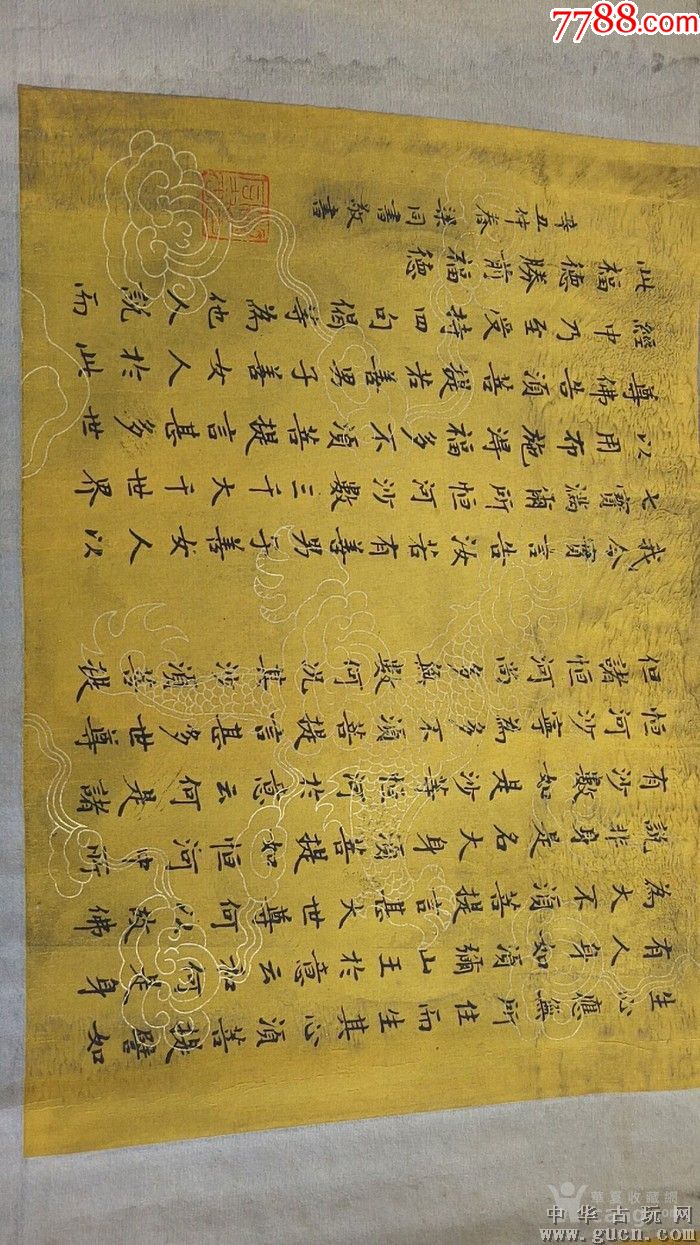 7788.com
生心應無所住而生其心須菩提譬如
有人身如須彌山王於意云何是身
為大不須菩提言甚大世尊何以故佛
說非身是名大身須菩提如恒河中所
有沙數如是沙等恒河於意云何是諸
恒河沙寧為多不須菩提言甚多世尊
但諸恒河尚多無數何況其沙須菩提
我今實言告汝若有善男子善女人以
七寶滿爾所恒河沙數三千大千世界
以用布施得福多不須菩提言甚多世
尊佛告須菩提若善男子善女人於此
經中乃至受持四句偈等為他人說而
此福德勝前福德
辛丑仲春梁同書敬書
華夏收藏網
中华古玩网
www.gucn.com